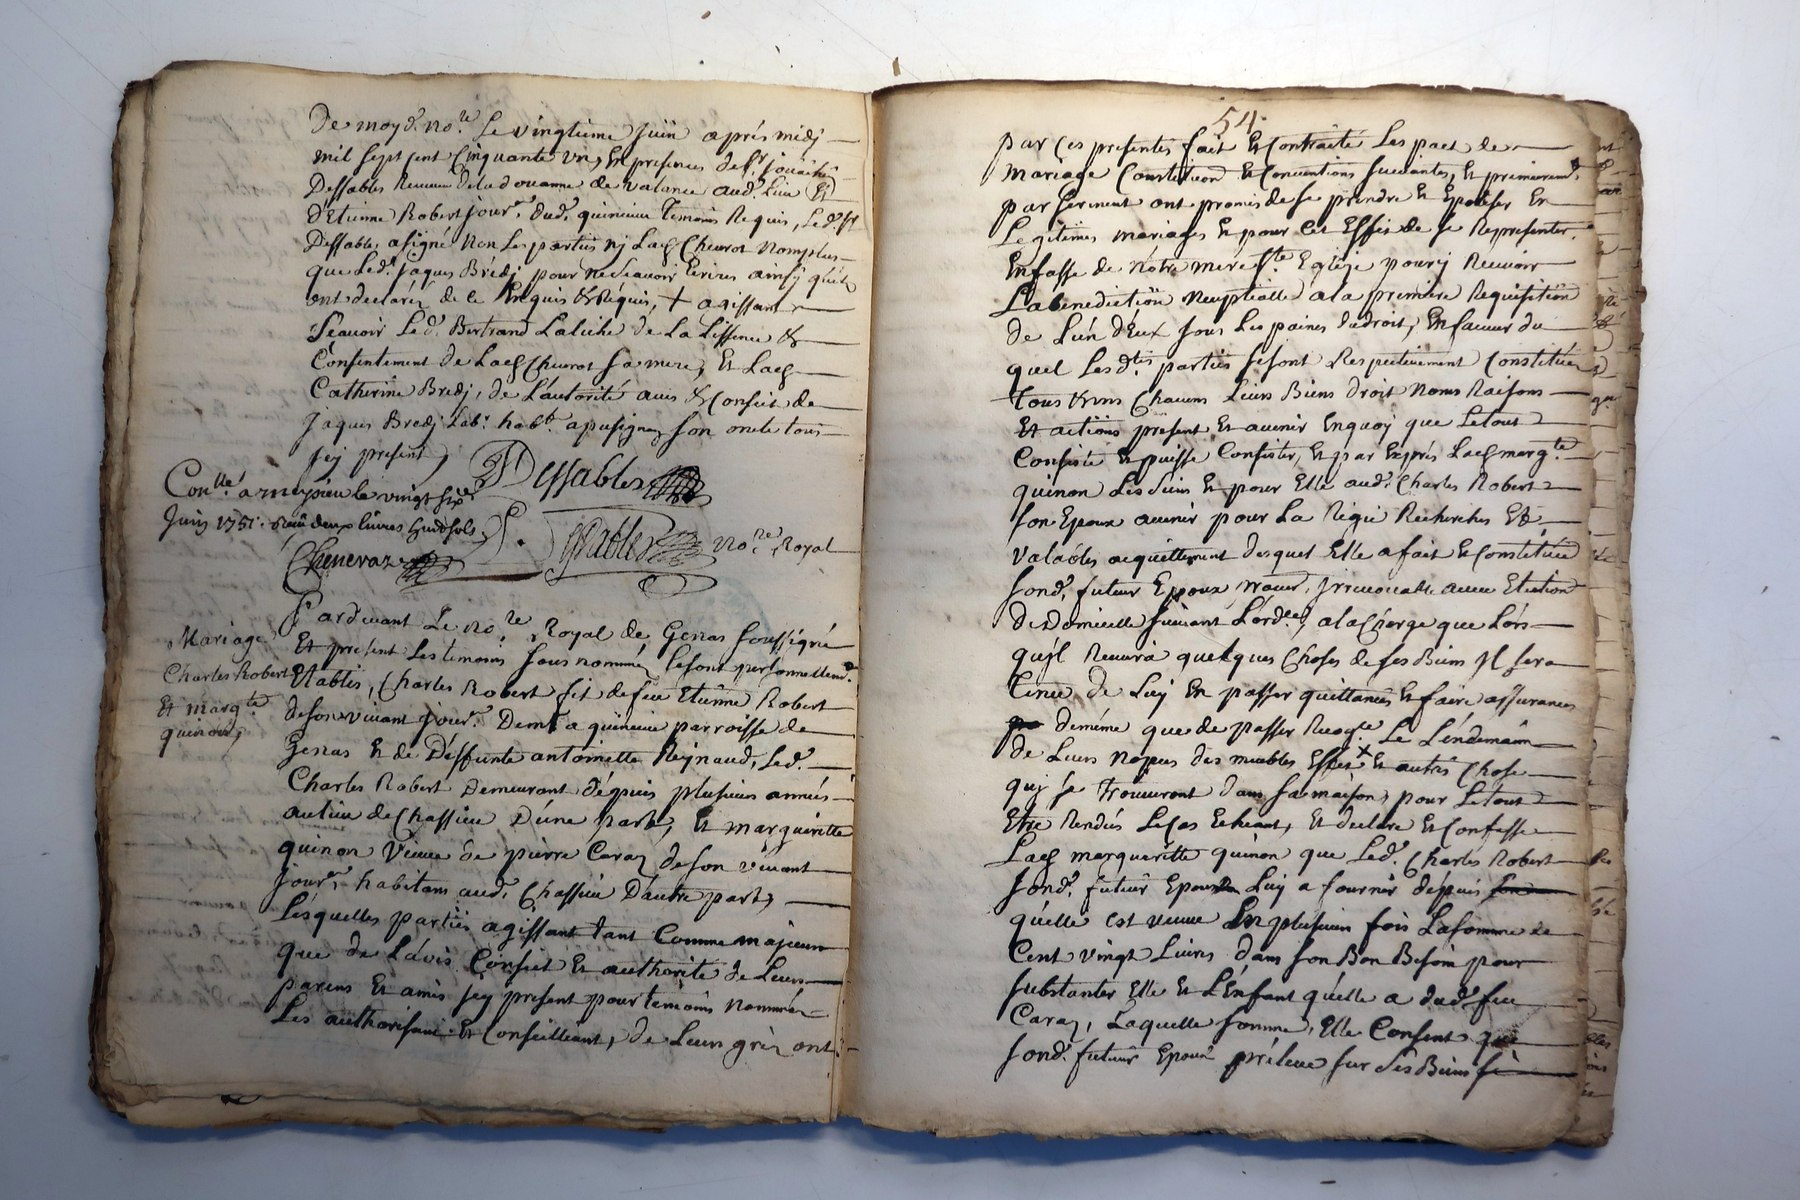 De moy d. no.re Le vingtieme Juin aprés midj
mil sept cent Cinquante un, En presences de Sr. Joachin
Dessables Receveur de la doüanne de valance aud. Lieu Et
d'Etienne Robert jour.r dud. quineux temoins Requis, Led. Sr
Dessables a signé non Les parties nj Lad. Chevrot nomplus
que Led. Jaques Brédj pour ne Scavoir Ecrires ainsÿ quils
ont declaréz de ce Enquis & Réquis, + agissant
Scavoir Led. Bertrand de La Lissence &
Consentement de Lad. Chevrot sa mere, Et Lad.
Catherine Bredj, de L'autorité avis & Conseit de
Jaques Bredj Lab.r hab.t a pusignan son oncle tous
jcy present,
Dessables
Con.llé a meyzieu le vingt six
Juin 1751. Reçu deux livres huit sols
Chenevaz
Dessables no.re Royal
Mariage
Charles Robert
Et marg.te
quinon,
Pardevant Le no.re Royal de Genas soussigné
Et présent Les temoins sous nomméz se sont personnellem.t
Etablis, Charles Robert fils de feu Etienne Robert
de son vivant jour.r Dem.t a quineux parroisse de
Genas & de Déffunte antoinette Reÿnaud, Led.
Charles Robert Demeurant dépuis plusieurs années
au Lieu de Chassieu D'une part, Et margueritte
quinon Veuve de pierre Caraz de son vivant
jour.r habitans aud. Chassieu D'autre part,
Lésquelles parties agissant tant Comme majeurs
que de L'avis Conseit Et authorité de Leurs
parens Et amis jcy présent pour temoins nommés
Les authorisant Et Conseilleant, de Leurs gréz ont
54
par Ces presentes fait & Contraité Les pact de
mariage Constitution & Conventions suivantes, Et premierem.t
par serment ont promis de se prendre & Epouser En
Legitimes mariages Et pour Cet Effet de se Representer
En fasse de nôtre mere S.te Eglize pour ÿ Recevoir
La bénédiction Neuptialle a la premiere Requisition
de L'un d'Eux sous Les peines du droit, En faveur du
quel Lesd.tes parties se sont Respectivement Constituées
tous & uns Chacuns Leurs Biens droit noms Raisons
Et actions présent Et avenir En quoÿ que Le tout
Consiste & puisse Consister, Et par Exprés Lad. marg.te
quinon Les siens & pour Elle aud. Charles Robert
son Epoux avenir pour La Régie Recherches Et
valables acquittement desquel Elle a fait & Constitué
sond. futeur Epoux irrevocable avec Election
de Domicille suivant L'ord.ce, a la Charge que Lors
qu'jl Recevra quelques Choses de ses Biens jl sera
tenu de Luÿ En passer quittances & faire assurances
de même que de passer Le L'endemain
de Leurs Nopces des meubles Effets + Et autres Chose
quj se trouveront dans sa maison, pour Le tout
Etre Rendus Le Cas Echeant, Et declare & Confesse
Lad. margueritte quinon que Led. Charles Robert
sond. futeur Epoux Luÿ a fournir dépuis
qu'elle est veuve En plusieurs fois La somme de
Cent vingt Livres dans son Bon Besoin pour
substanter Elle & L'Enfant qu'elle a dud. feu
Caraz, Laquelle somme, Elle Consent que
sond. futeur Epoux préleve sur Ses Biens si